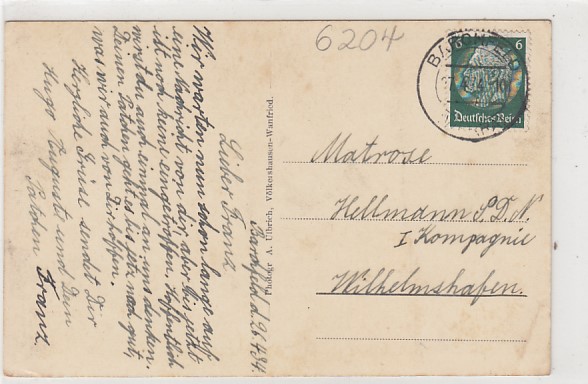 6204
BARCHFELD
6
Deutsches Reich
Barchfeld d. 26.4.34.
Lieber Franz
Wir warten nun schon lange auf
eine Nachricht von dir, aber bis jetzt
ist noch keine eingetroffen. Hoffentlich
wirst du auch einmal an uns denken.
Deinen Patchen geht es bis jetz noch gut,
was wir auch von Dir hoffen.
Herzliche Grüsse sendet Dir
Hugo Auguste und Dein
Patchen Franz
Photogr. A. Ulbrich, Völkershausen-Wanfried.
Matrose
Hellmann S. D. N.
I Kompagnie
Wilhelmshafen.